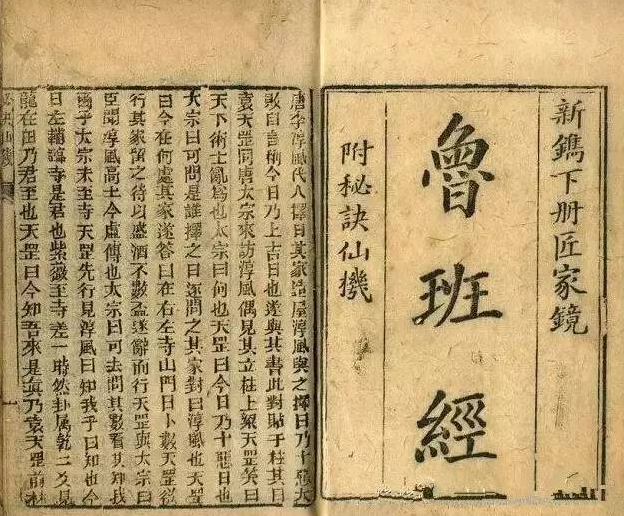 新鐫下册匠家鏡
魯班經
附秘訣仙機
唐李淳風代人擇日其家造屋淳風與之擇日乃十惡大
敗日言稱今日乃上吉日也遂與其書此對貼于柱其日
袁天罡同唐太宗來訪淳風偶見其立柱上梁天罡笑曰
天下術士亂爲也太宗曰何也天罡曰今日乃十惡日也
太宗曰可問是誰擇之日逐問之其家對曰淳風也天罡
曰今在何處其家遂答曰在右左寺山門日卜數天罡欲
行其家留之待以盛酒不數盃遂辭而行天罡與太宗曰
臣聞淳風高士今虛傳也太宗曰可去問其數看其知我
兩乎太宗未至寺天罡先行見淳風曰知我乎曰知也今
日左輔歸寺是君也紫薇至寺差一時然卦属乾二爻見
龍在田乃君至也天罡曰今知吾來是眞乃袁天罡前